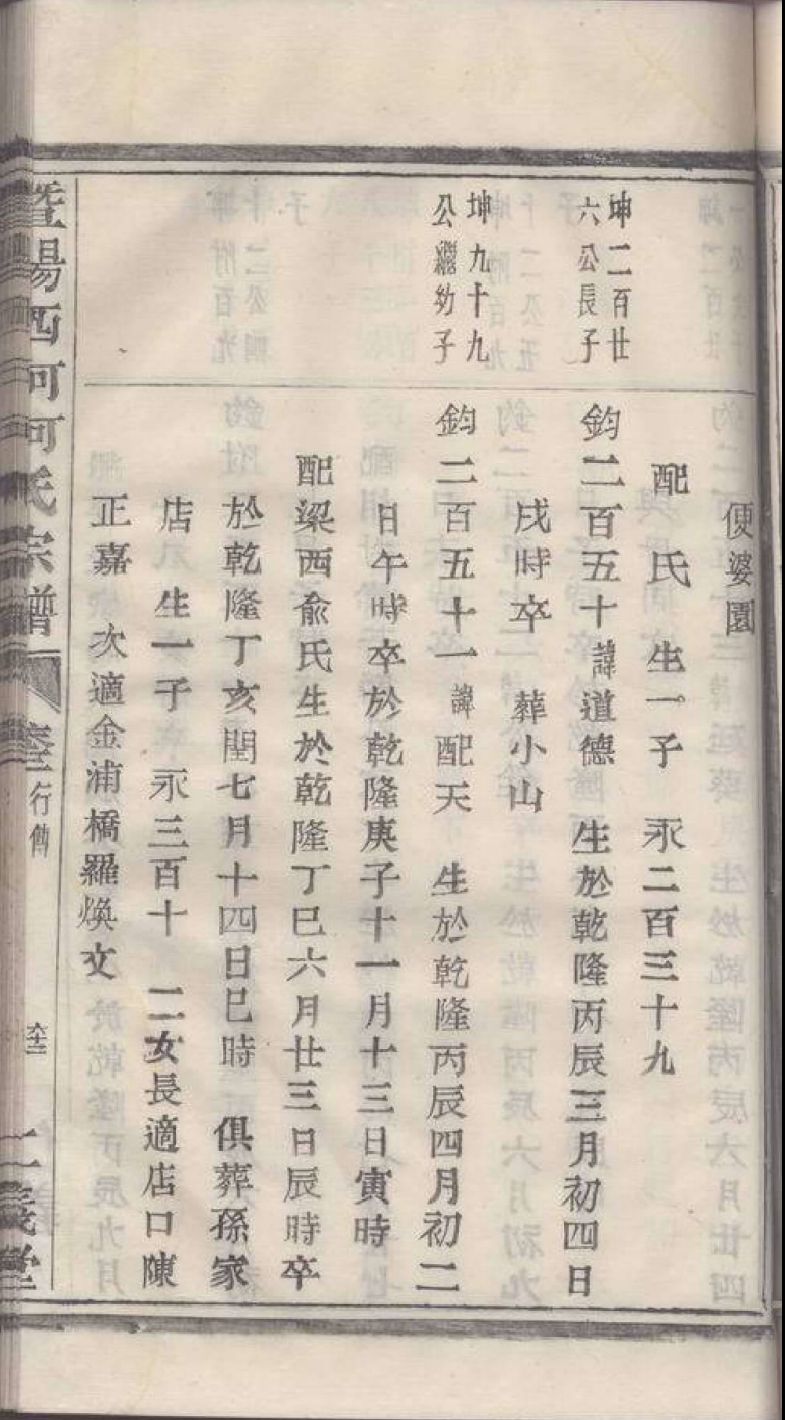 便婆園
配　氏　生一子　永二百三十九
坤二百廿
六公長子
鈞二百五十諱道德　生於乾隆丙辰三月初四日
戌時卒　葬小山
坤九十九
公繼幼子
鈞二百五十一諱配天　生於乾隆丙辰四月初二
日午時卒於乾隆庚子十一月十三日寅時
配梁西俞氏生於乾隆丁巳六月廿三日辰時卒
於乾隆丁亥閏七月十四日巳時　俱葬孫家
店　生一子　永三百十　二女長適店口陳
正嘉　次適金浦橋羅煥文
暨陽西河何氏宗譜　行傳